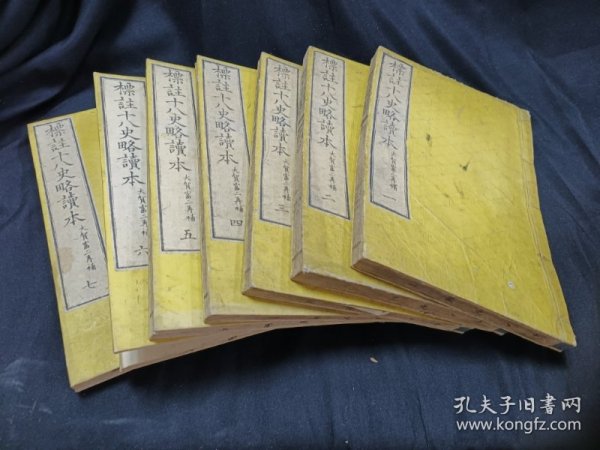 標註十八史略讀本 大賀富二再補 一
標註十八史略讀本 大賀富二再補 二
標註十八史略讀本 大賀富二再補 三
標註十八史略讀本 大賀富二再補 四
標註十八史略讀本 大賀富二再補 五
標註十八史略讀本 大賀富二再補 六
標註十八史略讀本 大賀富二再補 七
孔夫子旧书网
www.kongfz.com